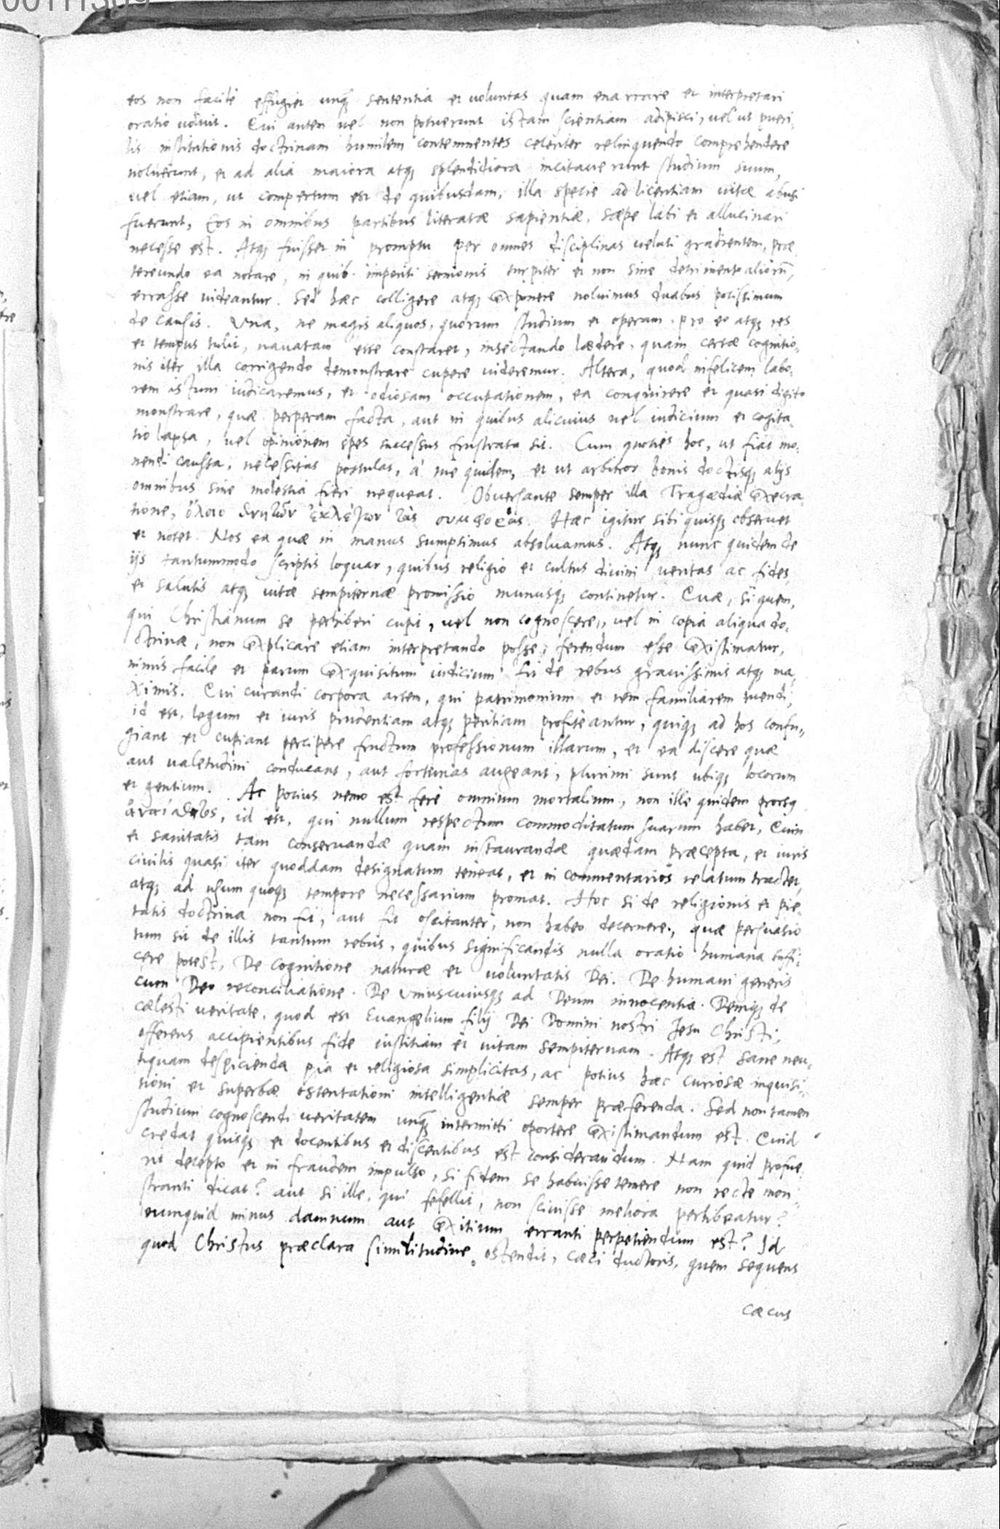 eos non facile effugiet unq̃ sententia et voluntas quam enarrare et interpretari
oratio voluit. Qui autem vel non potuerunt istam scientiam adipisci, vel ut pueri-
lis institutionis doctrinam humilem contemnentes celeriter relinquendo comprehendere
noluerunt, et ad alia maiora atq; splendidiora incitaverunt studium suum,
vel etiam, ut compertum est de quibusdam, illa specie ad licentiam vitæ abusi
fuerunt, Eos in omnibus partibus literatæ sapientiæ, sæpe labi et allucinari
necesse est. Atq; fuisset in promptu per omnes disciplinas veluti gradientem, præ
tereundo ea notare, in quib. imperiti sermonis turpiter et non sine detrimento aliorũ,
errasse videantur. Sed hæc colligere atq; exponere noluimus duabus potissimum
de causis. Una, ne magis aliquos, quorum studium et operam pro eo atq; res
et tempus tulit, navatam esse constaret, insectando lædere, quam certæ cognitio-
nis iter illa corrigendo demonstrare cupere videremur. Altera, quod infelicem labo-
rem istum iudicaremus, et odiosam occupationem, ea conquirere et quasi digito
monstrare, quæ perperam facta, aut in quibus alicuius vel iudicium et cogita-
tio lapsa, vel opinionem spes successus frustrata sit. Cum quoties hoc, ut fiat mo-
nendi caussa, necessitas postulat, a me quidem, et ut arbitror bonis doctisq; alijs
omnibus sine molestia fieri nequeat. Obversante semper illa Tragœdiæ execra-
tione, ὄλοιο θνητῶν ἐκλέγων τὰς συμφοράς. Hæc igitur sibi quisq; observet
et notet. Nos ea quæ in manus sumpsimus absolvamus. Atq; nunc quidem de
ijs tantummodo scriptis loquar, quibus religio et cultus divini veritas ac fides
et salutis atq; vitæ sempiternæ promissio munusq; continetur. Quæ, si quem,
qui Christianum se perhiberi cupit, vel non cognoscere, vel in copia aliqua do-
ctrinæ, non explicare etiam interpretando posse, ferendum esse existimatur,
nimis facile et parum exquisitum iudicium fit de rebus gravissimis atq; ma-
ximis. Qui curandi corpora artem, qui patrimonium et rem familiarem tuendi,
id est, legum et iuris prudentiam atq; peritiam profiteantur, quiq; ad hos confu-
giant et cupiant percipere fructum professionum illarum, et ea discere quæ
aut valetudini conducant, aut fortunas augeant, plurimi sunt ubiq; locorum
et gentium. Ac potius nemo est fere omnium mortalium, non ille quidem prorsq
id est, qui nullum respectum commoditatum suarum habet, Quin
et sanitatis tam conservandæ quam instaurandæ quædam præcepta, et iuris
civilis quasi iter quoddam designatum teneat, et in commentarios relatum tractet,
atq; ad usum quoq; tempore necessarium promat. Hoc si de religionis et pie-
tatis doctrina non fit, aut fit oscitanter, non habeo decernere, quæ persuasio
tum sit de illis tantum rebus, quibus significandis nulla oratio humana suffi-
cere potest, De cognitione naturæ et voluntatis Dei. De humani generis
cum Deo reconciliatione. De uniuscuiusq; ad Deum innocentia. Deniq; de
cælesti veritate, quod est Evangelium filij Dei Domini nostri Jesu Christi,
offerens accipientibus fide iustitiam et vitam sempiternam. Atq; est sane neu-
tiquam despicienda pia et religiosa simplicitas, ac potius hæc curiosæ inquisi-
tioni et superbæ ostentationi intelligentiæ semper præferenda. Sed non tamen
studium cognoscendi veritatem unq̃ intermitti oportere existimandum est. Quid
credat quisq; et docentibus et discentibus est considerandum. Nam quid profue
rit decepto et in fraudem impulso, si fidem se habuisse temere non recte mon-
stranti dicat? aut si ille, qui fefellit, non scivisse meliora perhibeatur?
numquid minus damnum aut exitium erranti perpetiendum est? Id
quod Christus præclara similitudine ostendit, cæci ductoris, quem sequens
cæcus